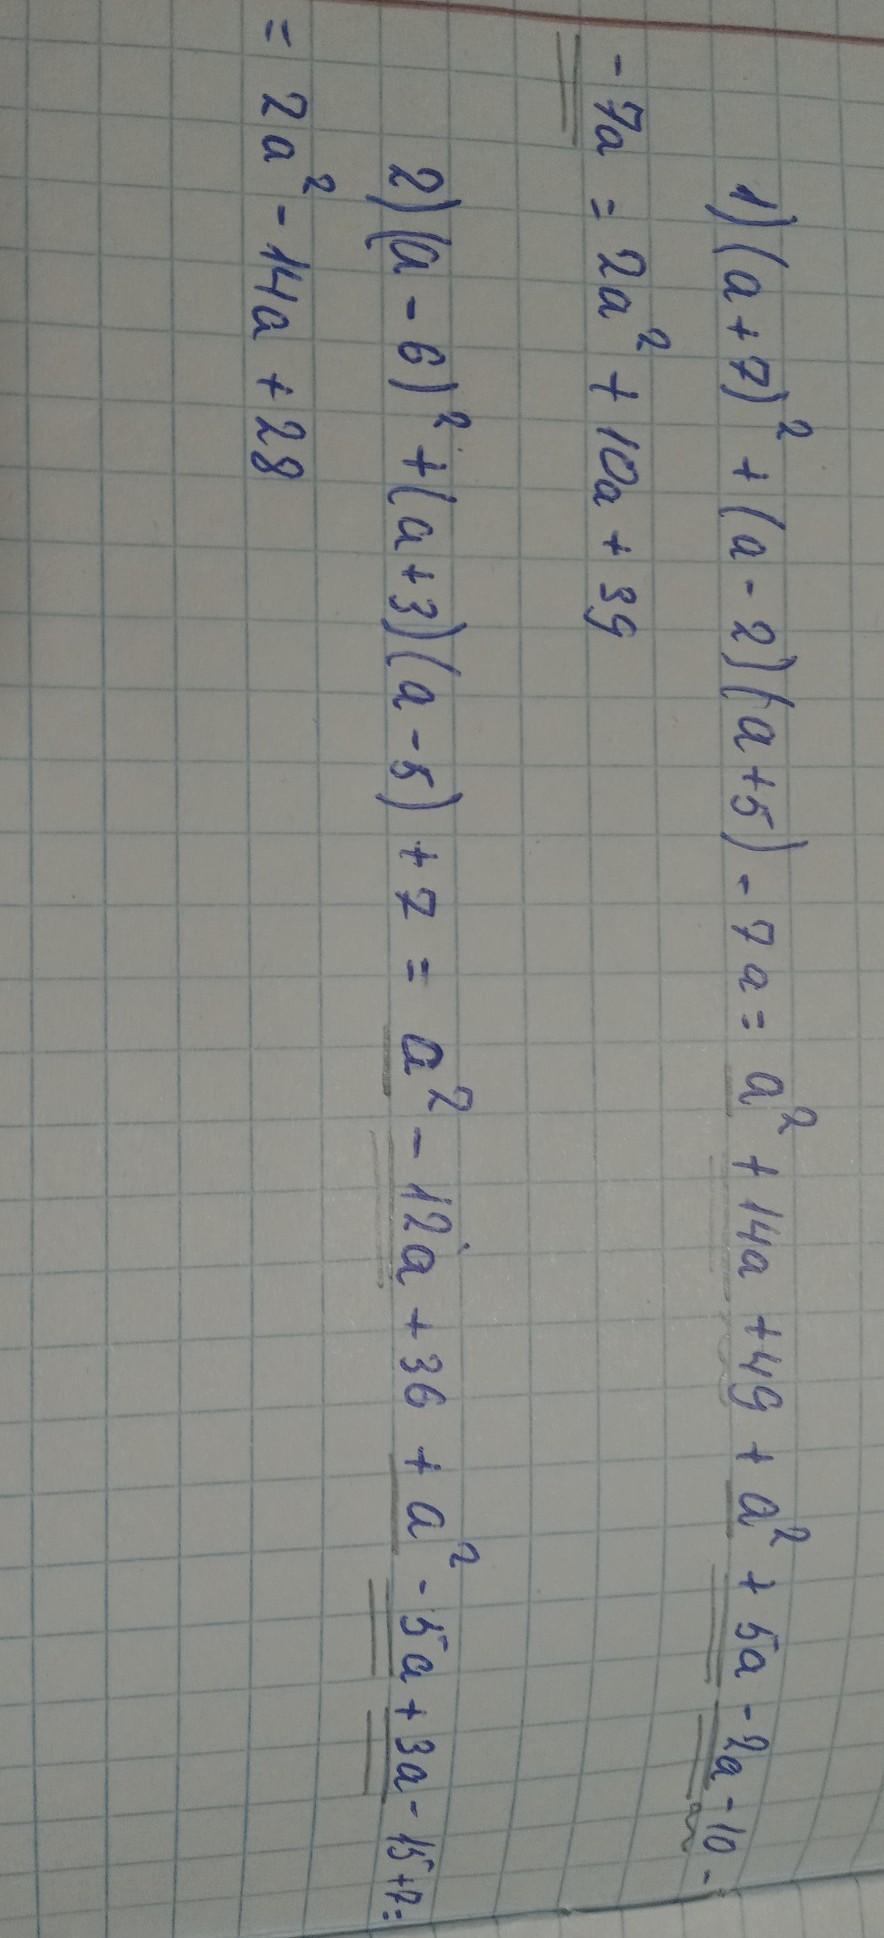 1) (a + 7)² + (a - 2)(a + 5) - 7a = a² + 14a + 49 + a² + 5a - 2a - 10 -
- 7a = 2a² + 10a + 39
2) (a - 6)² + (a + 3)(a - 5) + 7 = a² - 12a + 36 + a² - 5a + 3a - 15 + 7 =
= 2a² - 14a + 28